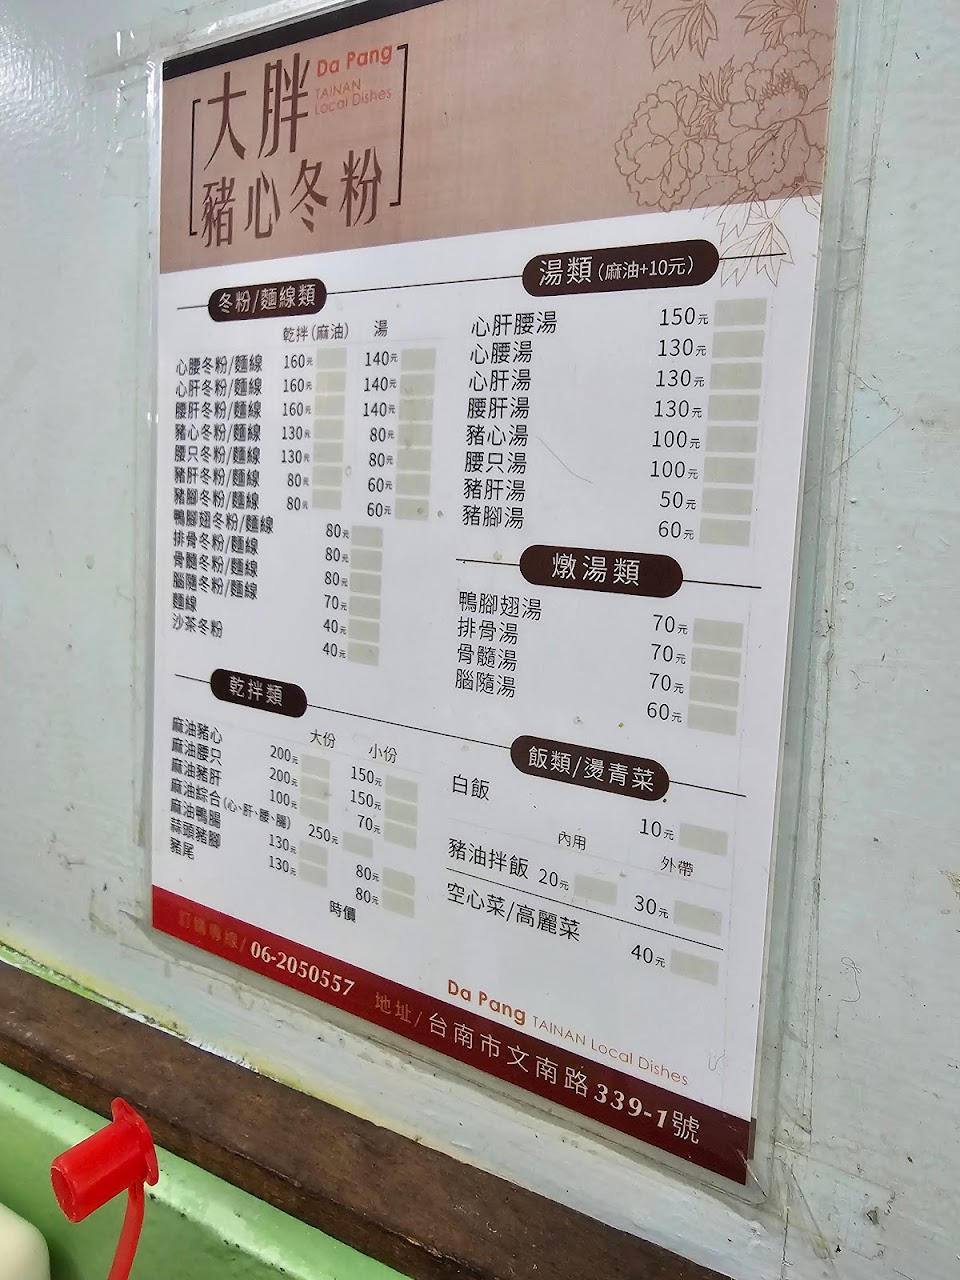 大胖
Da Pang
TAINAN
Local Dishes
豬心冬粉
冬粉/麵線類
乾拌(麻油) 湯
心腰冬粉/麵線 160元 140元
心肝冬粉/麵線 160元 140元
腰肝冬粉/麵線 160元 140元
豬心冬粉/麵線 130元 80元
腰只冬粉/麵線 130元 80元
豬肝冬粉/麵線 80元 60元
豬腳冬粉/麵線 80元 60元
鴨腳翅冬粉/麵線 80元
排骨冬粉/麵線 80元
骨髓冬粉/麵線 80元
腦隨冬粉/麵線 70元
麵線 40元
沙茶冬粉 40元
乾拌類
大份 小份
麻油豬心 200元 150元
麻油腰只 200元 150元
麻油豬肝 100元 70元
麻油綜合(心、肝、腰、腸) 250元
麻油鴨腸 130元 80元
蒜頭豬腳 130元 80元
豬尾 時價
湯類(麻油+10元)
心肝腰湯 150元
心腰湯 130元
心肝湯 130元
腰肝湯 130元
豬心湯 100元
腰只湯 100元
豬肝湯 50元
豬腳湯 60元
燉湯類
鴨腳翅湯 70元
排骨湯 70元
骨髓湯 70元
腦隨湯 60元
飯類/燙青菜
白飯 10元
內用 外帶
豬油拌飯 20元 30元
空心菜/高麗菜 40元
Da Pang TAINAN Local Dishes
訂購專線/06-2050557 地址/台南市文南路339-1號